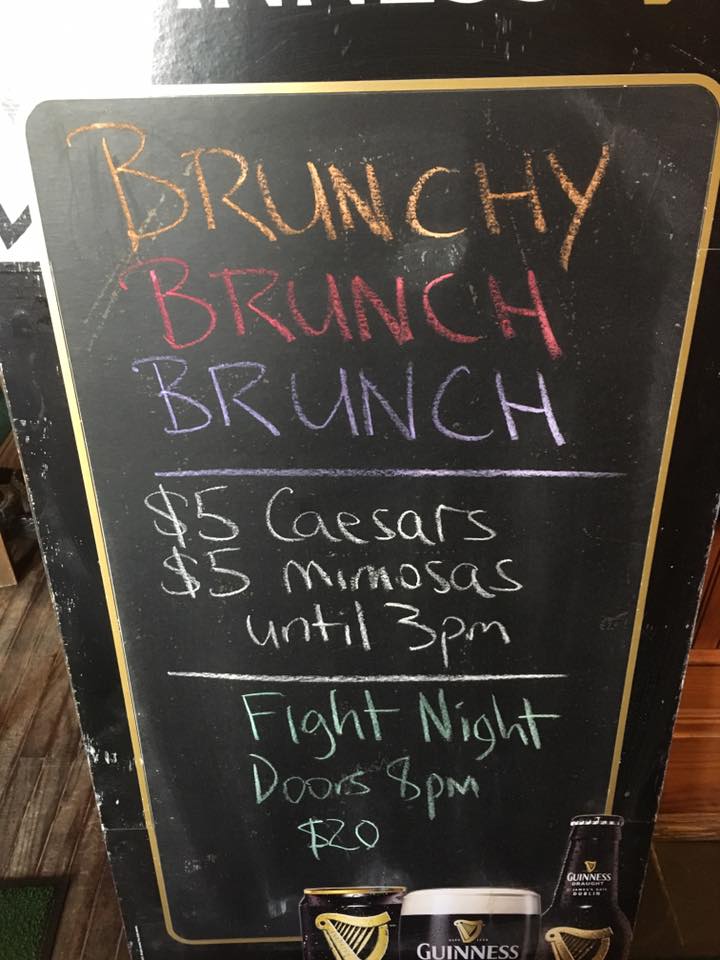 BRUNCHY
BRUNCH
BRUNCH
$5 Caesars
$5 mimosas
until 3pm
Fight Night
Doors 8pm
$20
GUINNESS
DRAUGHT
DUBLIN
GUINNESS